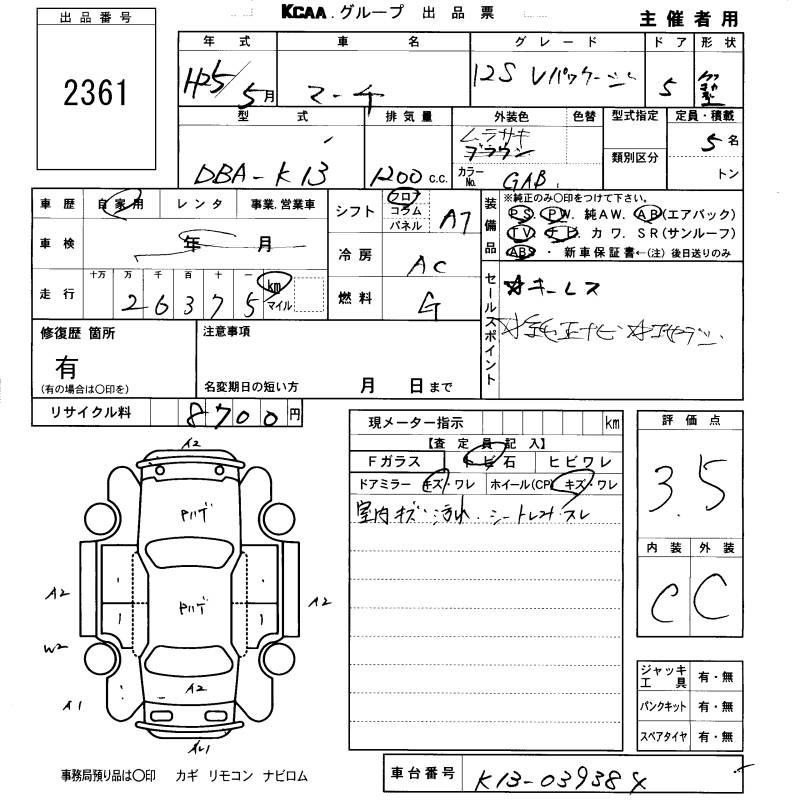 KCAA.グループ 出品票
出品番号
2361
主催者用
年式 車名 グレード ドア 形状
H25/5月 マーチ 12S Vパッケージ 5
型式 排気量 外装色 色替 型式指定 定員・積載
ムラサキ 5名
ブラウン
DBA-K13 1200c.c. カラーNo. GAB 類別区分 トン
車歴 自家用 レンタ 事業.営業車
シフト フロア コラム パネル AT
装備品 ※純正のみ○印をつけて下さい。
PS. PW. 純AW. AB(エアバック)
TV. ナビ. カワ. SR(サンルーフ)
ABS・新車保証書←(注)後日送りのみ
車検 年 月
冷房 AC
走行 十万 万 千 百 十 一
26375 km マイル
燃料 G
セールスポイント ☆キーレス
☆純正ナビ ☆
修復歴箇所
有
(有の場合は○印を)
注意事項
名変期日の短い方 月 日まで
リサイクル料 8700円
現メーター指示 km
【査定員記入】
Fガラス トビ石 ヒビワレ
ドアミラー キズ・ワレ ホイール(CP) キズ・ワレ
室内キズ・汚れ・シートレスレ
評価点
3.5
内装 外装
C C
A2
Pハゲ
1 1
A2 Pハゲ A2
1 1
W2
A2
A1
A1
ジャッキ工具 有・無
パンクキット 有・無
スペアタイヤ 有・無
事務局預り品は○印 カギ リモコン ナビロム
車台番号 K13-039384